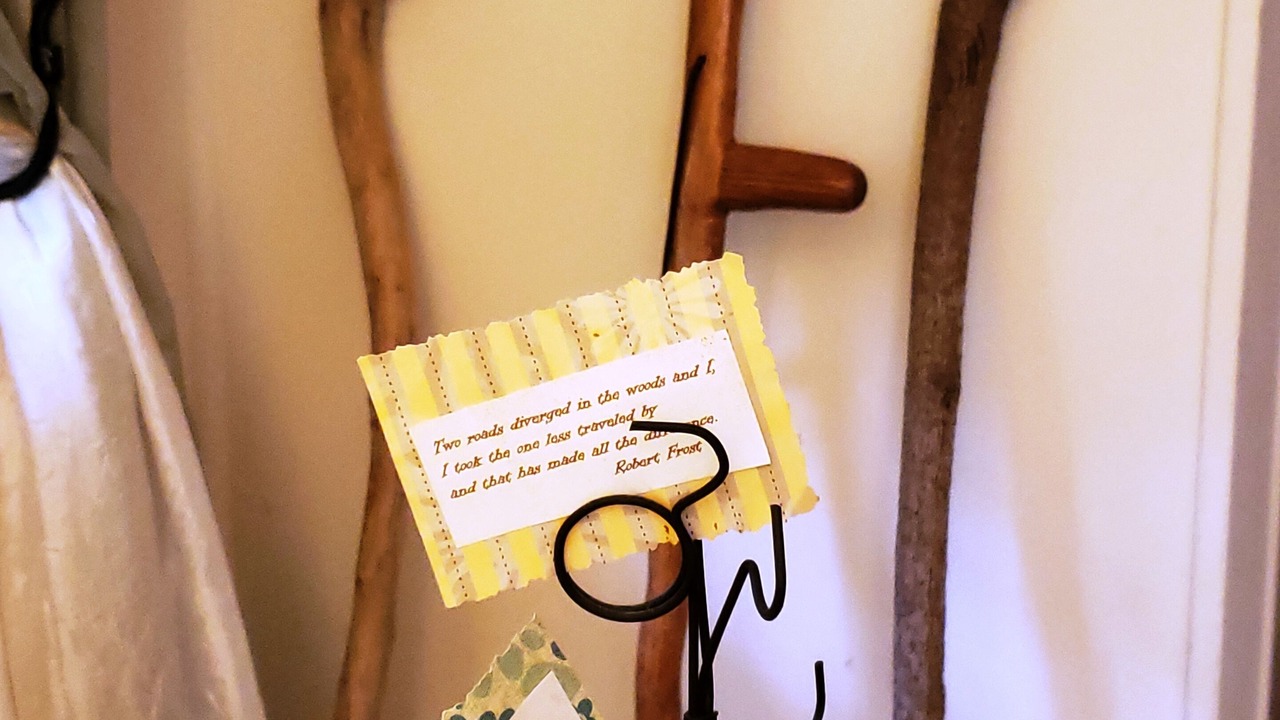 Two roads diverged in the woods and I,
I took the one less traveled by
and that has made all the difference.
Robert Frost